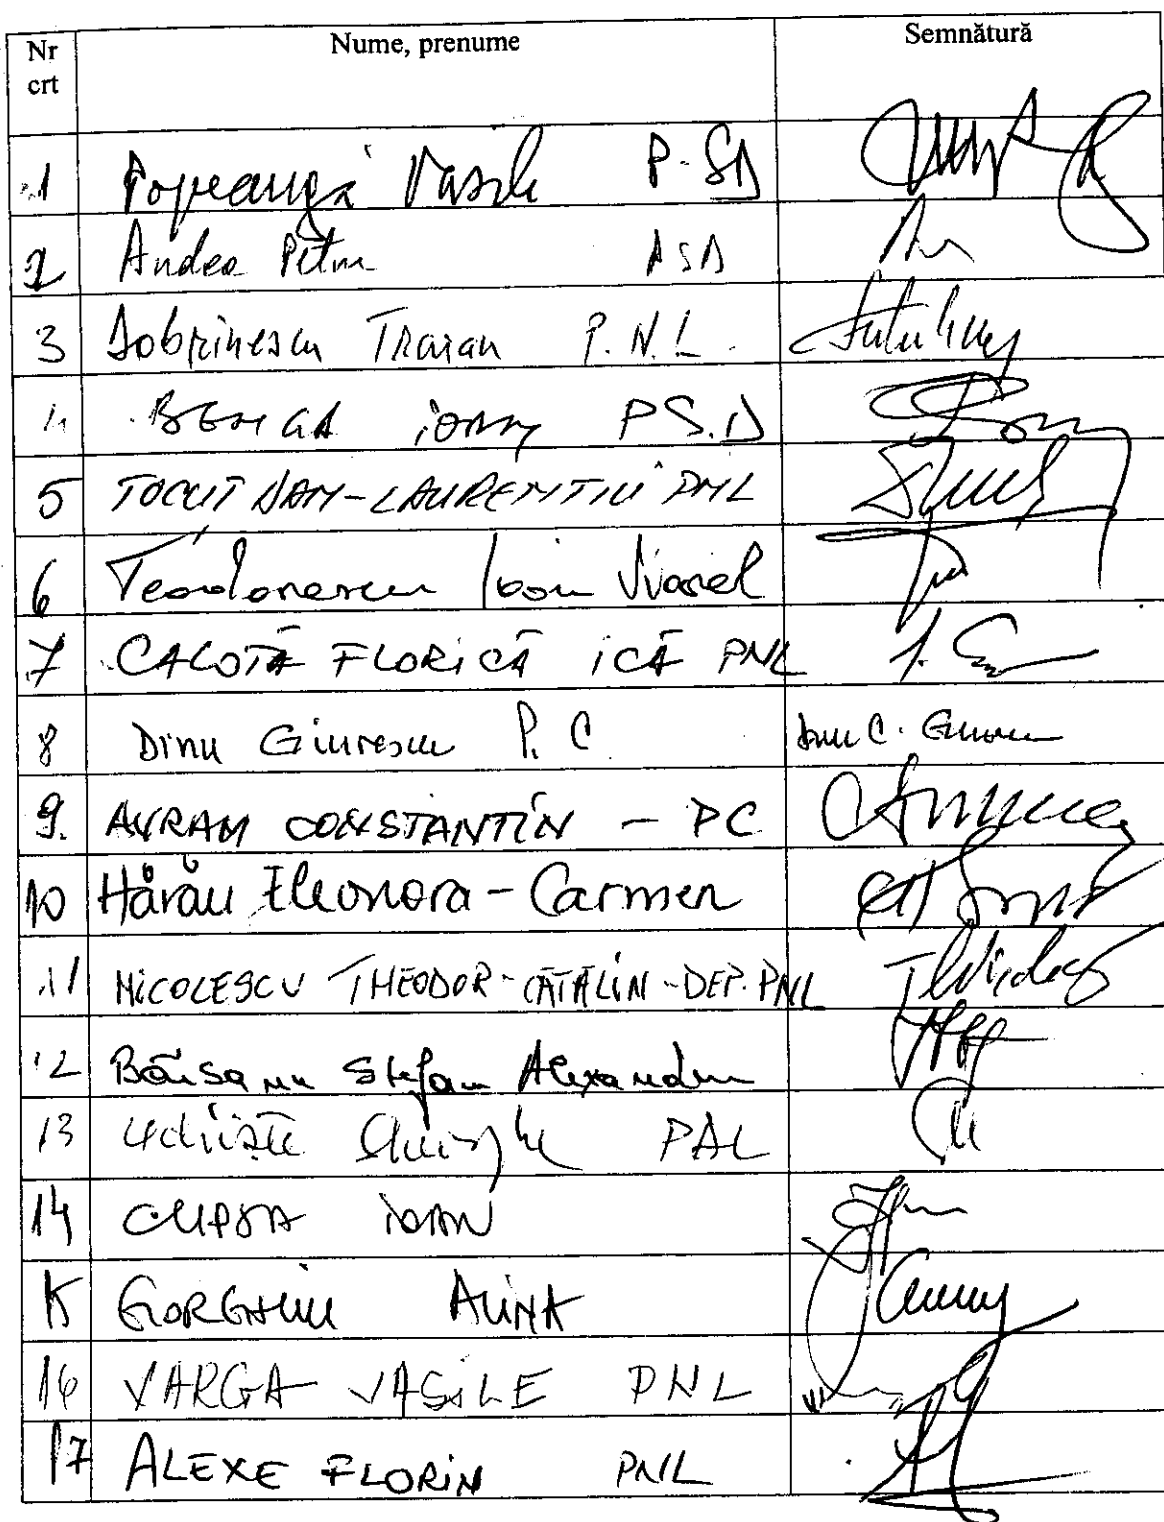 Nr crt Nume, prenume Semnătură
1 Popeangă Vasile PSD
2 Andea Petru PSD
3 Dobrinescu Traian P.N.L.
4 BENGA IOAN PS.D
5 TOCUȚ DAN-LAURENȚIU PNL
6 Teodorescu Ioan Viorel
7 CALOTĂ FLORICĂ ICĂ PNL
8 Dinu Giurescu P.C. Dinu C. Giurescu
9. AVRAM CONSTANTIN - PC
10 Hărău Eleonora-Carmen
11 NICOLESCU THEODOR-CĂTĂLIN-DEP.PNL
12 Băișanu Ștefan Alexandru
13 Udriște Gheorghe
14 CUPȘA IOAN
15 GORGHIU ALINA
16 VARGA VASILE PNL
17 ALEXE FLORIN PNL